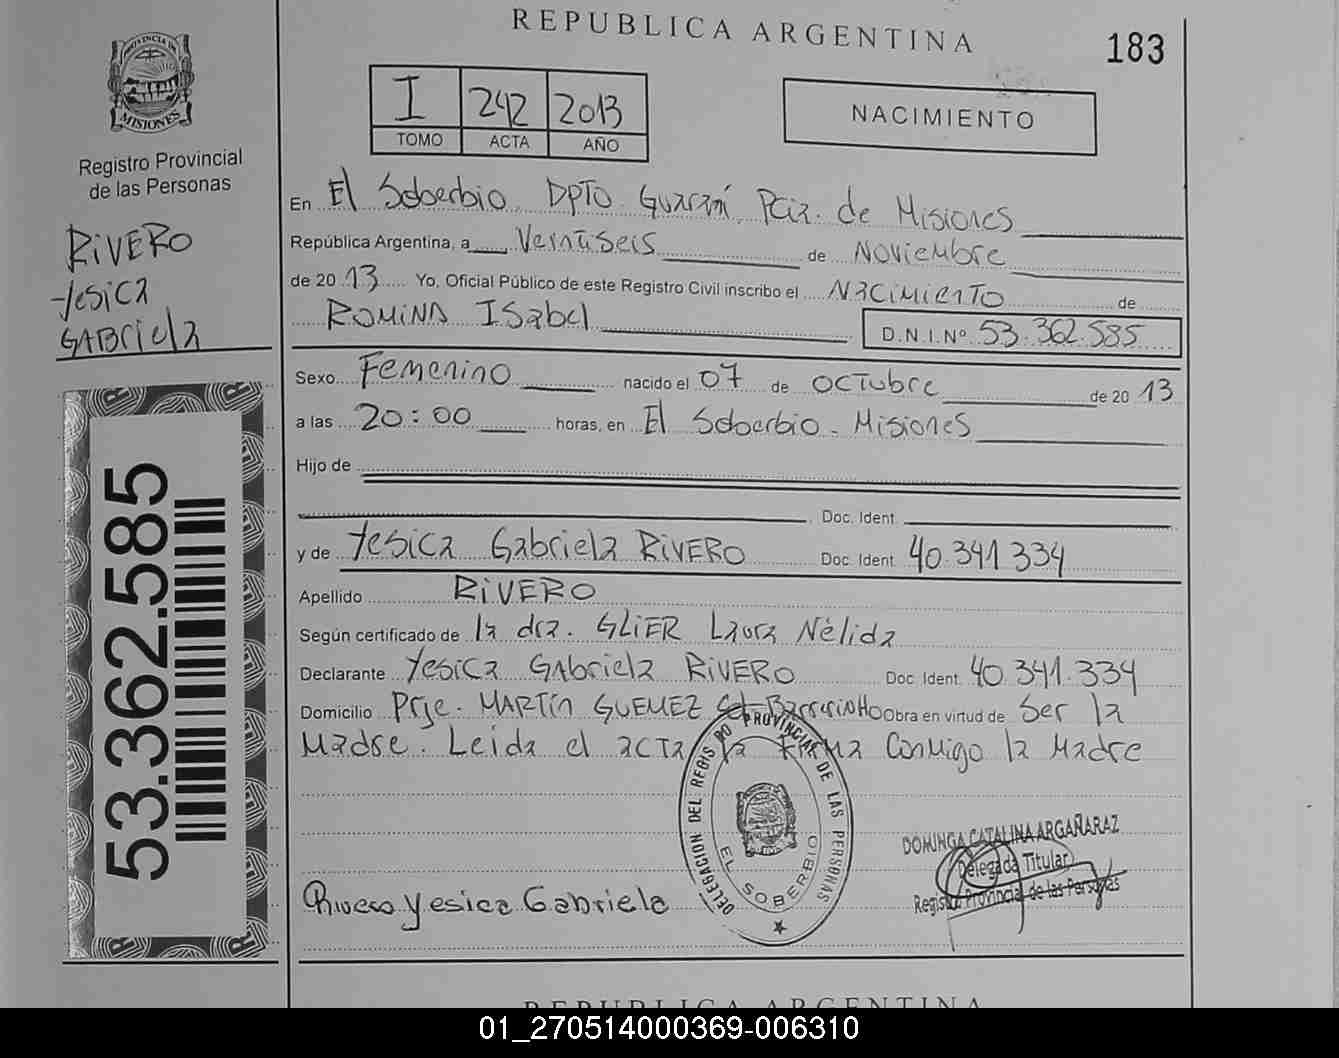 REPUBLICA ARGENTINA
183
PROVINCIA DE MISIONES
Registro Provincial
de las Personas
RiVERO
Yesica
GABriela
53.362.585
I 242 2013
TOMO ACTA AÑO
NACIMIENTO
En El Soberbio, DPTO. Guaraní, Pcia. de Misiones
República Argentina, a Veintiseis de Noviembre
de 2013 Yo, Oficial Público de este Registro Civil inscribo el NaCiMieNTO de
ROMiNA ISabel D.N.I.Nº 53.362.585
Sexo Femenino nacido el 07 de OCTubre de 2013
a las 20:00 horas, en El Soberbio - Misiones
Hijo de
Doc. Ident.
y de Yesica Gabriela RiVERO Doc. Ident. 40.341.334
Apellido RiVERO
Según certificado de la dra. GLiER Laura Nélida
Declarante Yesica GAbriela RiVERO Doc. Ident. 40.341.334
Domicilio Prje. MARTín GUEMEZ Obra en virtud de Ser la
Madre. Leida el acTa la firma ConMigo la Madre
DELEGACION DEL REGISTRO PROVINCIAL DE LAS PERSONAS
EL SOBERBIO
DOMINGA CATALINA ARGAÑARAZ
Delegada Titular
Registro Provincial de las Personas
Rivero Yesica Gabriela
REPUBLICA ARGENTINA
01_270514000369-006310